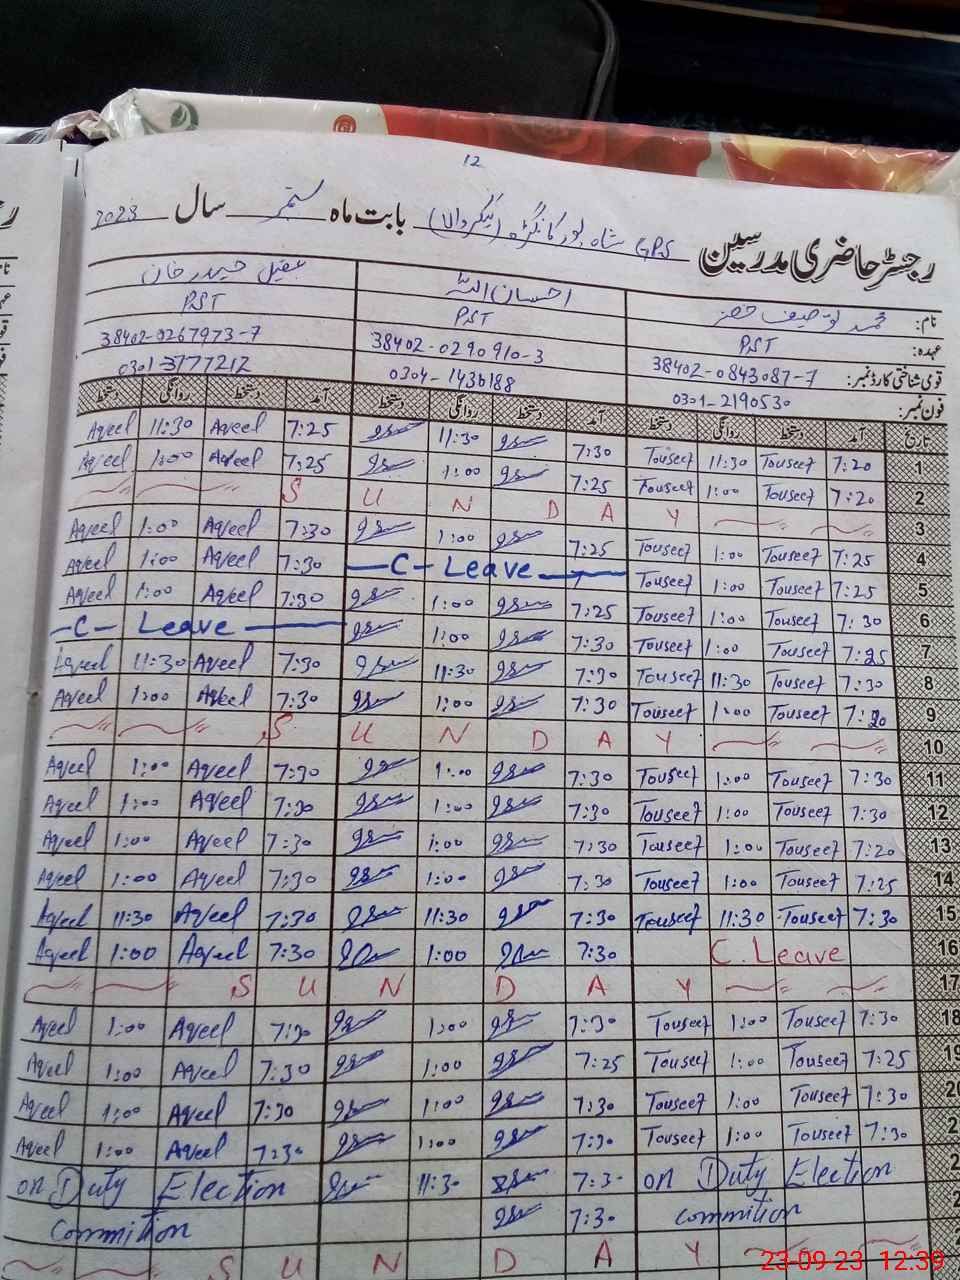 12
رجسٹر حاضری مدرسین GPS شاہ پور کانگڑہ (کیکر والا) بابت ماہ ستمبر سال 2023
نام: محمد توصیف خضر احسان اللہ عقیل حیدر خان
عہدہ: PST PST PST
قومی شناختی کارڈ نمبر: 38402-0843087-7 38402-0290910-3 38402-0267973-7
فون نمبر: 0301-2190530 0304-1436188 0301-3777212
تاریخ آمد دستخط روانگی دستخط آمد دستخط روانگی دستخط آمد دستخط روانگی دستخط
1 7:20 Touseef 11:30 Touseef 7:30 11:30 7:25 Aqeel 11:30 Aqeel
2 7:20 Touseef 1:00 Touseef 7:25 1:00 7:25 Aqeel 1:00 Aqeel
3 S U N D A Y
4 7:25 Touseef 1:00 Touseef 7:25 1:00 7:30 Aqeel 1:00 Aqeel
5 7:25 Touseef 1:00 Touseef — C - Leave — 7:30 Aqeel 1:00 Aqeel
6 7:30 Touseef 1:00 Touseef 7:25 1:00 7:30 Aqeel 1:00 Aqeel
7 7:25 Touseef 1:00 Touseef 7:30 1:00 — C - Leave —
8 7:30 Touseef 11:30 Touseef 7:30 11:30 7:30 Aqeel 11:30 Aqeel
9 7:20 Touseef 1:00 Touseef 7:30 1:00 7:30 Aqeel 1:00 Aqeel
10 S U N D A Y
11 7:30 Touseef 1:00 Touseef 7:30 1:00 7:30 Aqeel 1:00 Aqeel
12 7:30 Touseef 1:00 Touseef 7:30 1:00 7:30 Aqeel 1:00 Aqeel
13 7:20 Touseef 1:00 Touseef 7:30 1:00 7:30 Aqeel 1:00 Aqeel
14 7:25 Touseef 1:00 Touseef 7:30 1:00 7:30 Aqeel 1:00 Aqeel
15 7:30 Touseef 11:30 Touseef 7:30 11:30 7:30 Aqeel 11:30 Aqeel
16 C. Leave 7:30 1:00 7:30 Aqeel 1:00 Aqeel
17 S U N D A Y
18 7:30 Touseef 1:00 Touseef 7:30 1:00 7:30 Aqeel 1:00 Aqeel
19 7:25 Touseef 1:00 Touseef 7:25 1:00 7:30 Aqeel 1:00 Aqeel
20 7:30 Touseef 1:00 Touseef 7:30 1:00 7:30 Aqeel 1:00 Aqeel
2 7:30 Touseef 1:00 Touseef 7:30 1:00 7:30 Aqeel 1:00 Aqeel
2 on Duty Election 7:30 11:30 on Duty Election
2 commition 7:30 commition
S U N D A Y
23-09-23 12:39